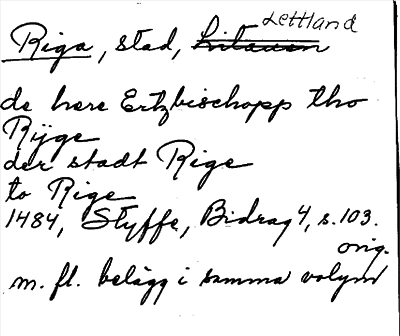 Lettland
Riga, stad, Litauen
de here Ertzbischopp tho
Rijge
der stadt Rige
to Rige
1484, Styffe, Bidrag 4, s. 103.
orig.
m. fl. belägg i samma volym